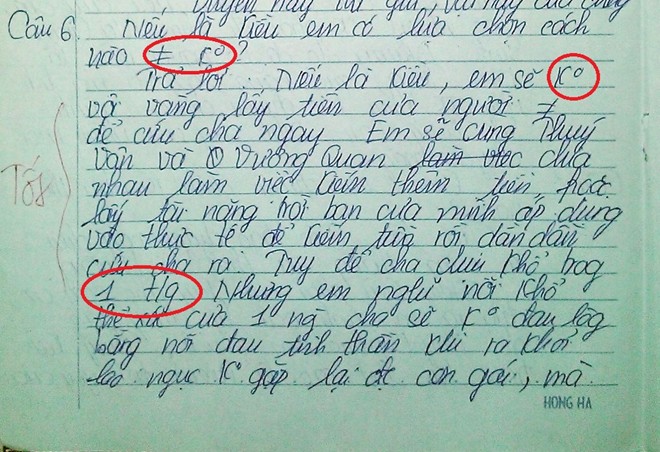 Câu 6. Nếu là Kiều em có lựa chọn cách
nào ≠ K° ?
Trả lời: Nếu là Kiều, em sẽ K°
vội vàng lấy tiền của người ≠
để cứu cha ngay. Em sẽ cùng Thúy
Tốt
Vân và Vương Quan ~~làm việc~~ chia
nhau làm việc kiếm thêm tiền hoặc
lấy tài năng trời ban của mình áp dụng
vào thực tế để kiếm tiền rồi dần dần
cứu cha ra. Tuy để cha chịu khổ trog
1 t/g. Nhưng em nghĩ nỗi khổ
thể xác của 1 ng cha sẽ K° đau lòg
bằng nỗi đau tinh thần khi ra khỏi
lao ngục K° gặp lại đc con gái, mà
HONG HA